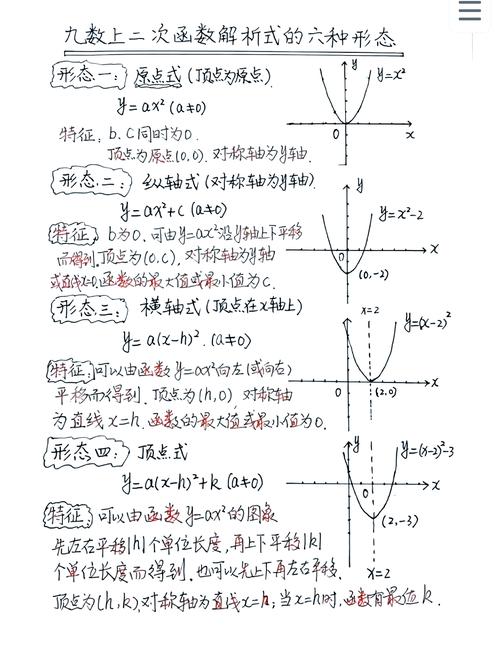 九数上二次函数解析式的六种形态
形态一: 原点式(顶点为原点)
y=ax²(a≠0)
特征: b、c同时为0.
顶点为原点(0,0). 对称轴为y轴.
y
y=x²
0
x
形态二: 纵轴式(对称轴为y轴)
y=ax²+c (a≠0)
特征: b为0. 可由y=ax²沿y轴上下平移
而得到. 顶点为(0,c), 对称轴为y轴
或直线x=0. 函数的最大值或最小值为c.
y
y=x²-2
0
x
(0,-2)
形态三: 横轴式(顶点在x轴上)
y=a(x-h)². (a≠0)
特征: 可以由函数y=ax²向左(或向右)
平移而得到. 顶点为(h,0) 对称轴
为直线x=h. 函数的最大值或最小值为0.
x=2
y=(x-2)²
(2,0)
x
形态四: 顶点式
y=a(x-h)²+k (a≠0)
特征: 可以由函数y=ax²的图象
先左右平移|h|个单位长度, 再上下平移|k|
个单位长度而得到. 也可以先上下再左右平移.
顶点为(h,k), 对称轴为直线x=h; 当x=h时, 函数有最值k.
y
y=(x-2)²-3
0
x
(2,-3)
x=2